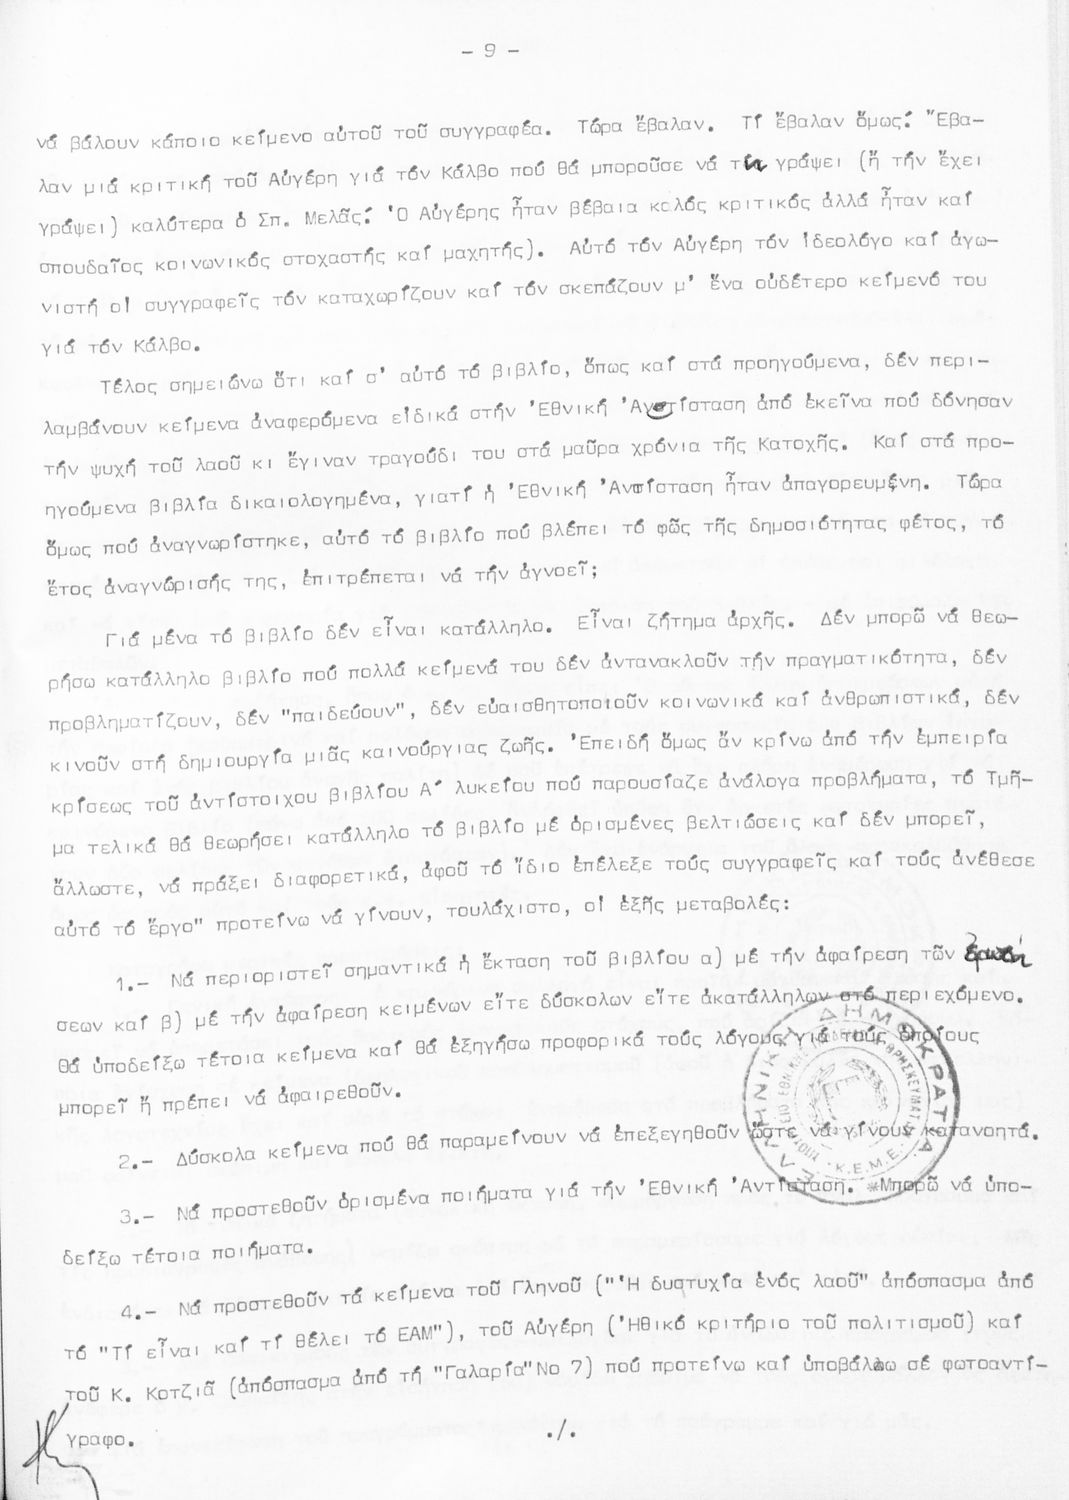 - 9 -
νά βάλουν κάποιο κείμενο αὐτοῦ τοῦ συγγραφέα. Τώρα ἔβαλαν. Τί ἔβαλαν ὅμως; Ἔβα-
λαν μιά κριτική τοῦ Αὐγέρη γιά τόν Κάλβο πού θά μποροῦσε νά τήν γράψει (ἤ τήν ἔχει
γράψει) καλύτερα ὁ Σπ. Μελᾶς. Ὁ Αὐγέρης ἦταν βέβαια καλός κριτικός ἀλλά ἦταν καί
σπουδαῖος κοινωνικός στοχαστής καί μαχητής). Αὐτό τόν Αὐγέρη τόν ἰδεολόγο καί ἀγω-
νιστή οἱ συγγραφεῖς τόν καταχωρίζουν καί τόν σκεπάζουν μ' ἕνα οὐδέτερο κείμενό του
γιά τόν Κάλβο.
Τέλος σημειώνω ὅτι καί σ' αὐτό τό βιβλίο, ὅπως καί στά προηγούμενα, δέν περι-
λαμβάνουν κείμενα ἀναφερόμενα εἰδικά στήν Ἐθνική Ἀντίσταση ἀπό ἐκεῖνα πού δόνησαν
τήν ψυχή τοῦ λαοῦ κι ἔγιναν τραγούδι του στά μαῦρα χρόνια τῆς Κατοχῆς. Καί στά προ-
ηγούμενα βιβλία δικαιολογημένα, γιατί ἡ Ἐθνική Ἀντίσταση ἦταν ἀπαγορευμένη. Τώρα
ὅμως πού ἀναγνωρίστηκε, αὐτό τό βιβλίο πού βλέπει τό φῶς τῆς δημοσιότητας φέτος, τό
ἔτος ἀναγνώρισής της, ἐπιτρέπεται νά τήν ἀγνοεῖ;
Γιά μένα τό βιβλίο δέν εἶναι κατάλληλο. Εἶναι ζήτημα ἀρχῆς. Δέν μπορῶ νά θεω-
ρήσω κατάλληλο βιβλίο πού πολλά κείμενά του δέν ἀντανακλοῦν τήν πραγματικότητα, δέν
προβληματίζουν, δέν "παιδεύουν", δέν εὐαισθητοποιοῦν κοινωνικά καί ἀνθρωπιστικά, δέν
κινοῦν στή δημιουργία μιᾶς καινούργιας ζωῆς. Ἐπειδή ὅμως ἄν κρίνω ἀπό τήν ἐμπειρία
κρίσεως τοῦ ἀντίστοιχου βιβλίου Α' λυκείου πού παρουσίαζε ἀνάλογα προβλήματα, τό Τμῆ-
μα τελικά θά θεωρήσει κατάλληλο τό βιβλίο μέ ὁρισμένες βελτιώσεις καί δέν μπορεῖ,
ἄλλωστε, νά πράξει διαφορετικά, ἀφοῦ τό ἴδιο ἐπέλεξε τούς συγγραφεῖς καί τούς ἀνέθεσε
αὐτό τό ἔργο" προτείνω νά γίνουν, τουλάχιστο, οἱ ἑξῆς μεταβολές:
1.- Νά περιοριστεῖ σημαντικά ἡ ἔκταση τοῦ βιβλίου α) μέ τήν ἀφαίρεση τῶν ἐρωτή
σεων καί β) μέ τήν ἀφαίρεση κειμένων εἴτε δύσκολων εἴτε ἀκατάλληλων στό περιεχόμενο.
Θά ὑποδείξω τέτοια κείμενα καί θά ἐξηγήσω προφορικά τούς λόγους γιά τούς ὁποίους
μπορεῖ ἤ πρέπει νά ἀφαιρεθοῦν.
2.- Δύσκολα κείμενα πού θά παραμείνουν νά ἐπεξεγηθοῦν ὥστε νά γίνουν κατανοητά.
3.- Νά προστεθοῦν ὁρισμένα ποιήματα γιά τήν Ἐθνική Ἀντίσταση. *Μπορῶ νά ὑπο-
δείξω τέτοια ποιήματα.
4.- Νά προστεθοῦν τά κείμενα τοῦ Γληνοῦ ("Ἡ δυστυχία ἑνός λαοῦ" ἀπόσπασμα ἀπό
τό "Τί εἶναι καί τί θέλει τό ΕΑΜ"), τοῦ Αὐγέρη (Ἠθικό κριτήριο τοῦ πολιτισμοῦ) καί
τοῦ Κ. Κοτζιᾶ (ἀπόσπασμα ἀπό τή "Γαλαρία" Νο 7) πού προτείνω καί ὑποβάλλω σέ φωτοαντί-
γραφο.
./.
ΕΛΛΗΝΙΚΗ ΔΗΜΟΚΡΑΤΙΑ
Κ.Ε.Μ.Ε.